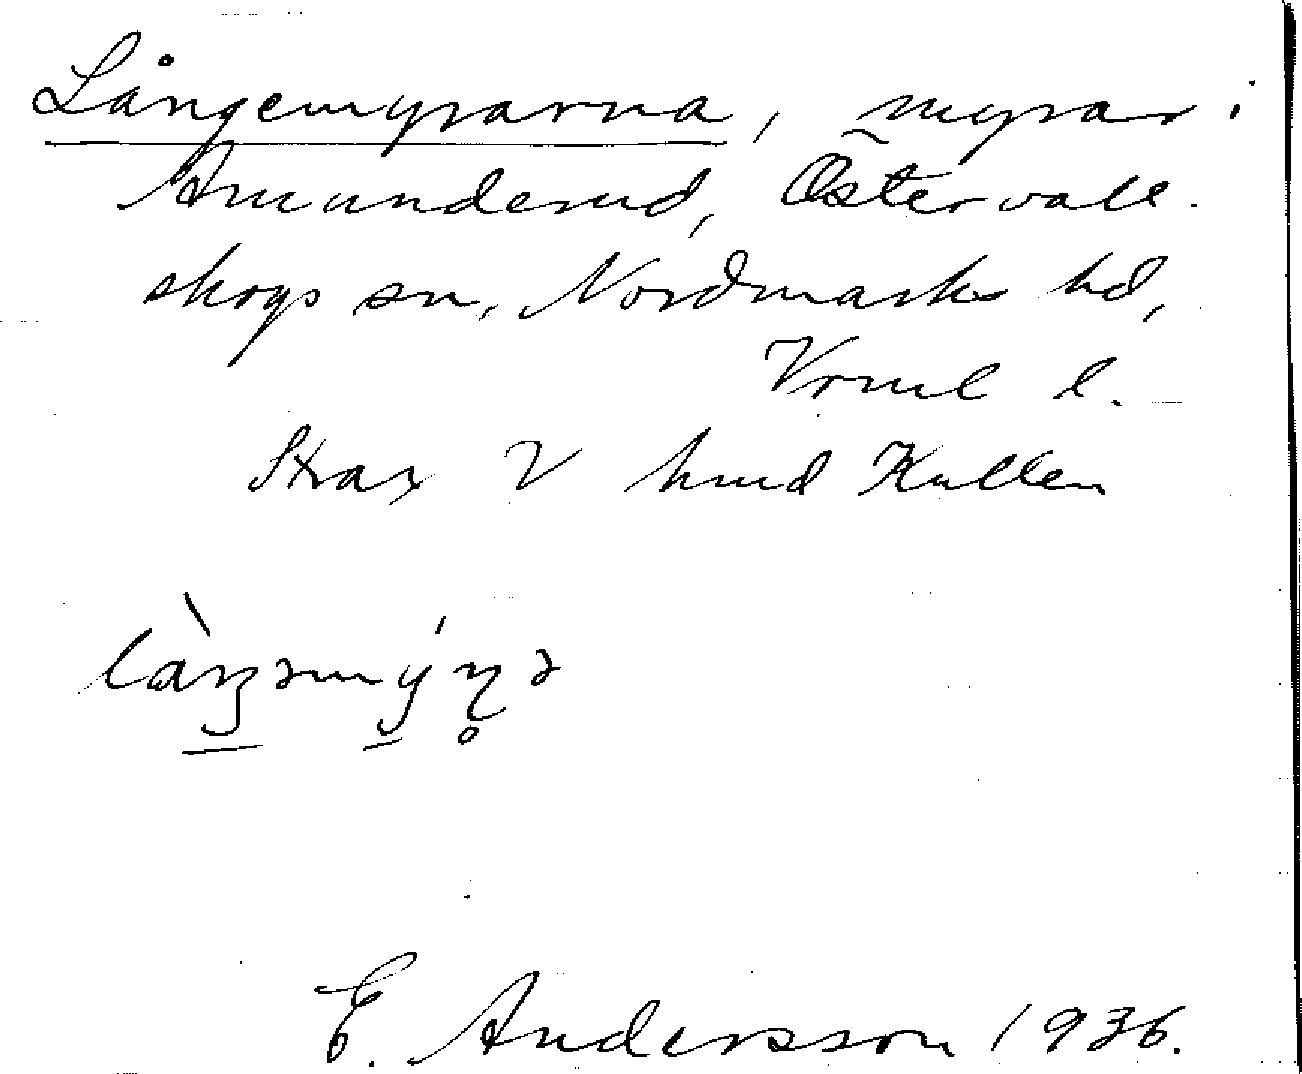 Långemyrarna, myrar i
Amunderud, Östervall-
skogs sn, Nordmarks hd,
Vrml l.
Strax V hmd Kullen
E. Andersson 1936.